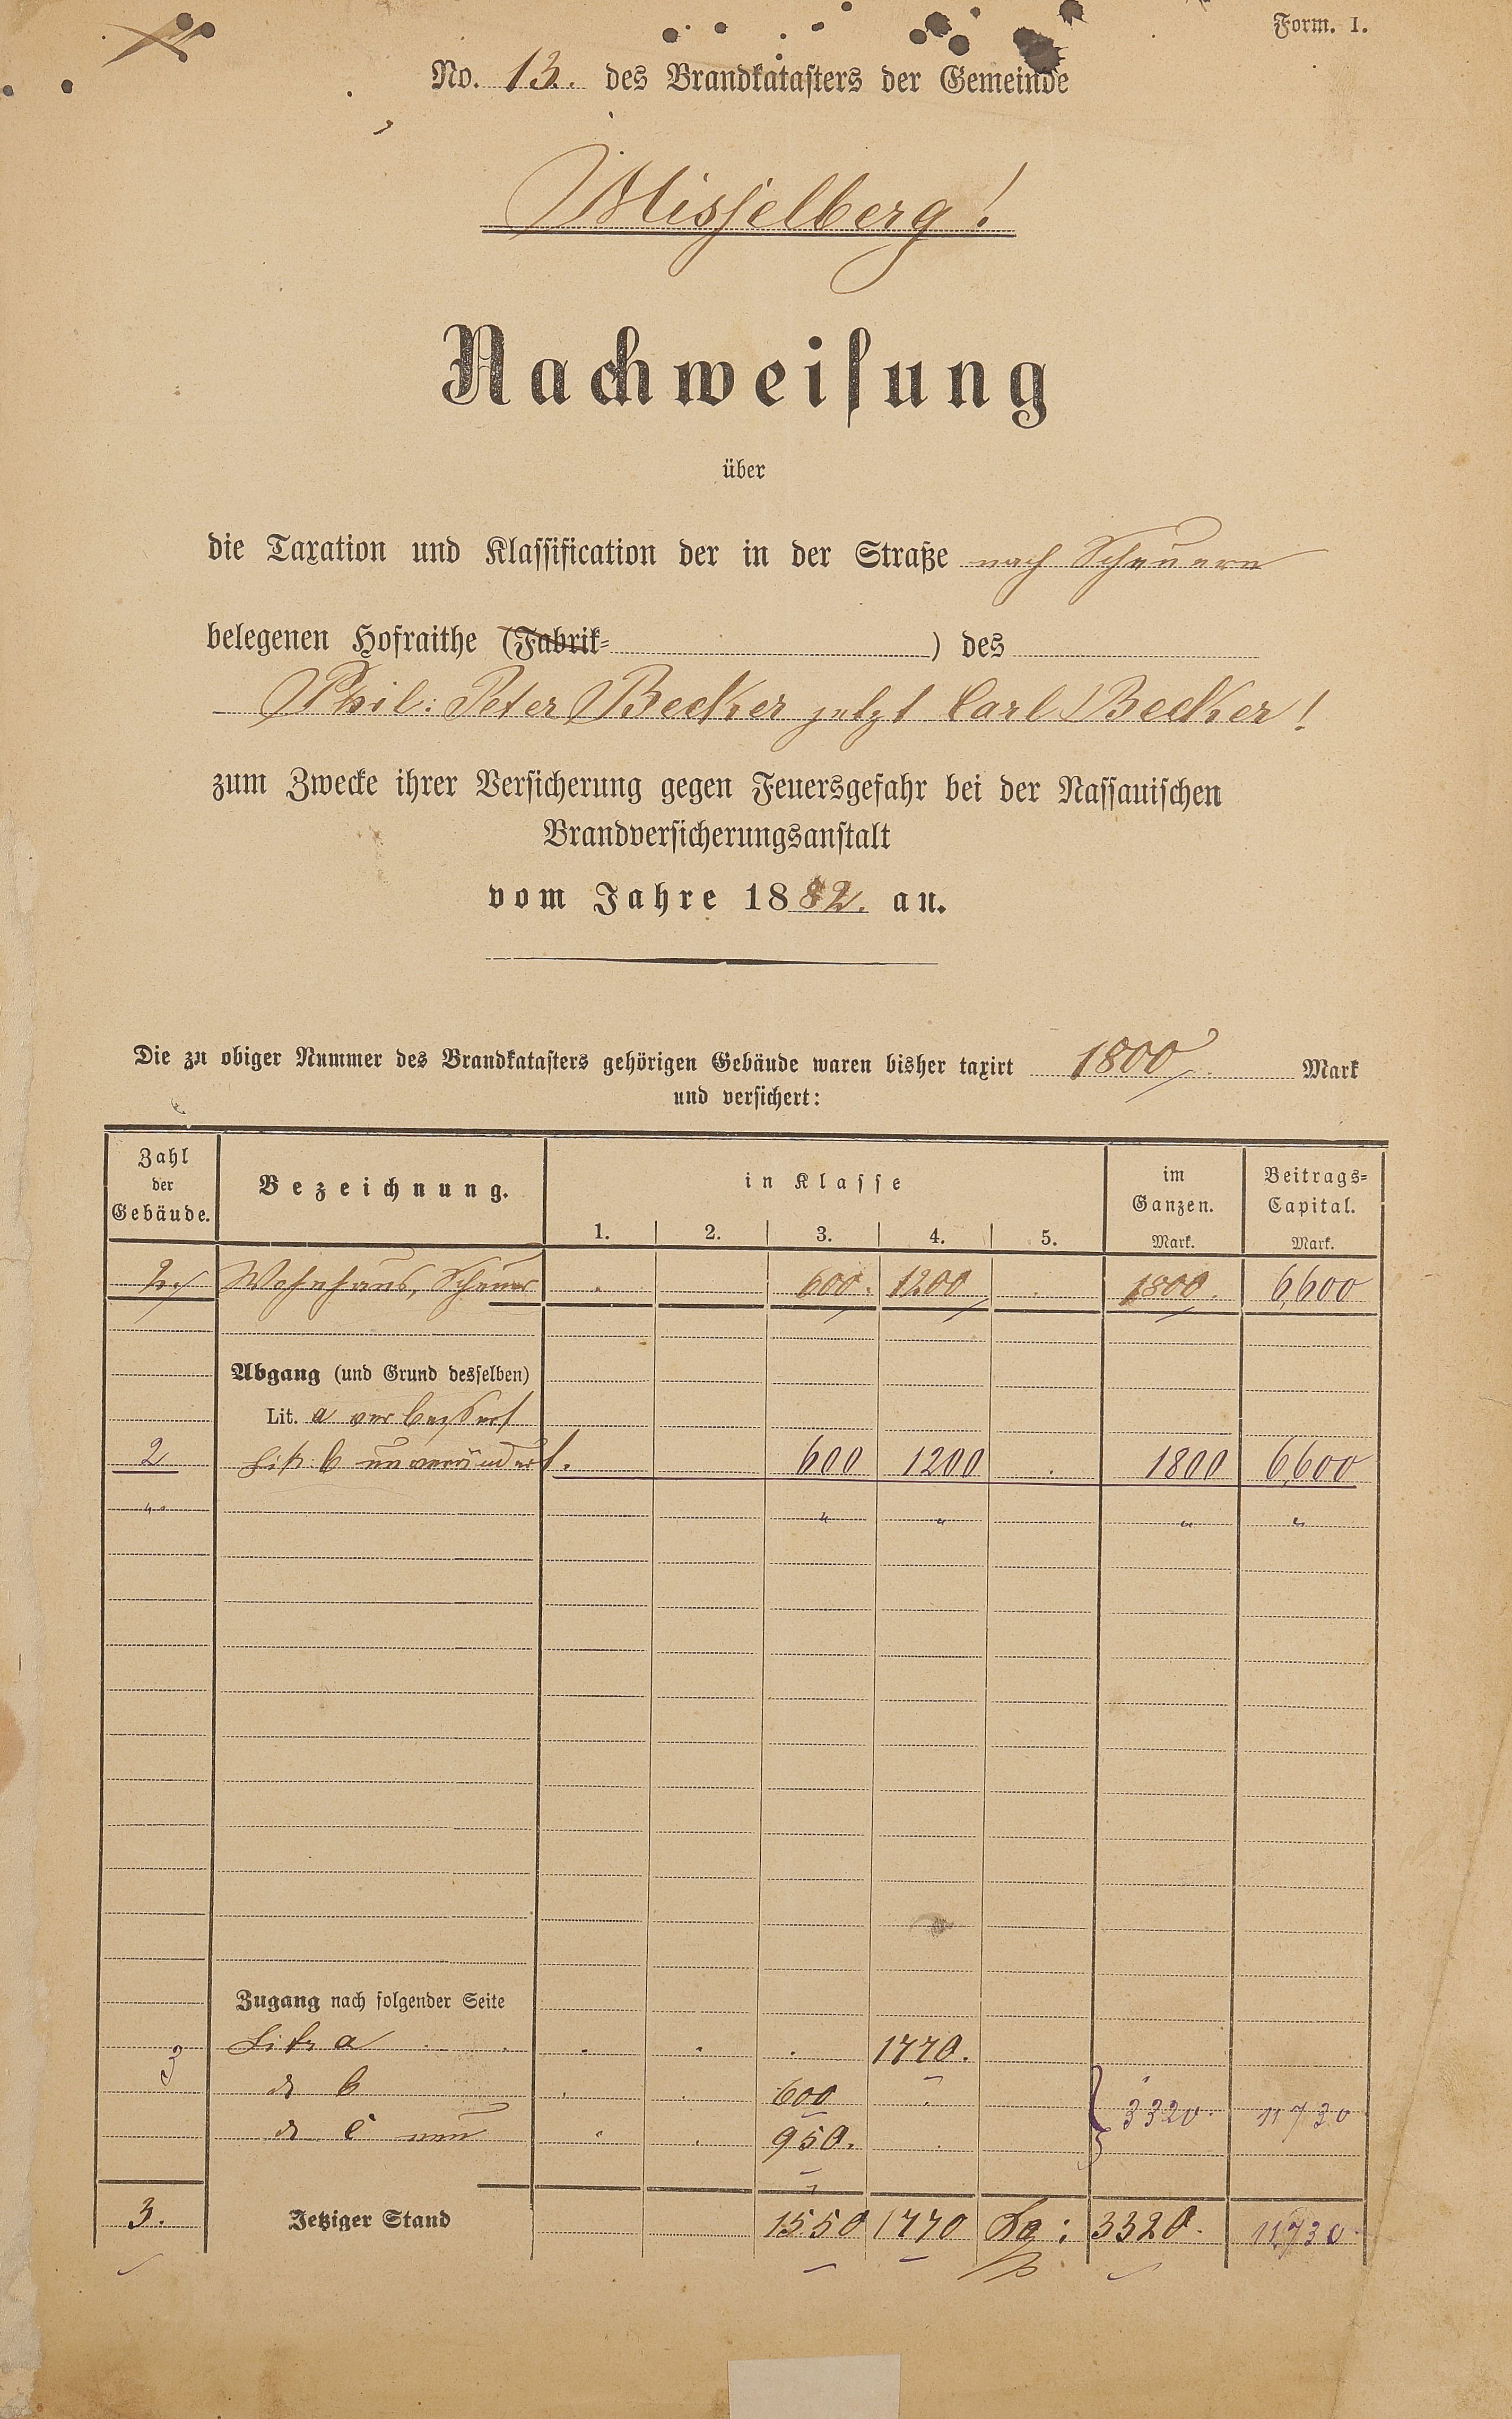 Form. I.
No. 13. des Brandkatasters der Gemeinde
Misselberg!
Nachweisung
über
die Taxation und Klassification der in der Straße nach Scheuern
belegenen Hofraithe (Fabrik= ) des
Phil: Peter Becker jetzt Carl Becker!
zum Zwecke ihrer Versicherung gegen Feuersgefahr bei der Nassauischen
Brandversicherungsanstalt
vom Jahre 1882. an.
Die zu obiger Nummer des Brandkatasters gehörigen Gebäude waren bisher taxirt 1800 Mark
und versichert:
Zahl der Gebäude. Bezeichnung. in Klasse im Ganzen. Beitrags= Capital.
1. 2. 3. 4. 5. Mark. Mark.
2. Wohnhaus, Scheuer 600. 1200 1800. 6,600
Abgang (und Grund desselben)
Lit. a verbessert
2 Litr. b unverändert. 600 1200 1800 6,600
" " " " "
Zugang nach folgender Seite
Litr a 1770.
3 do b 600 3320. 11730
do c neu 950.
3. Jetziger Stand 1550 1770 3320. 11,730